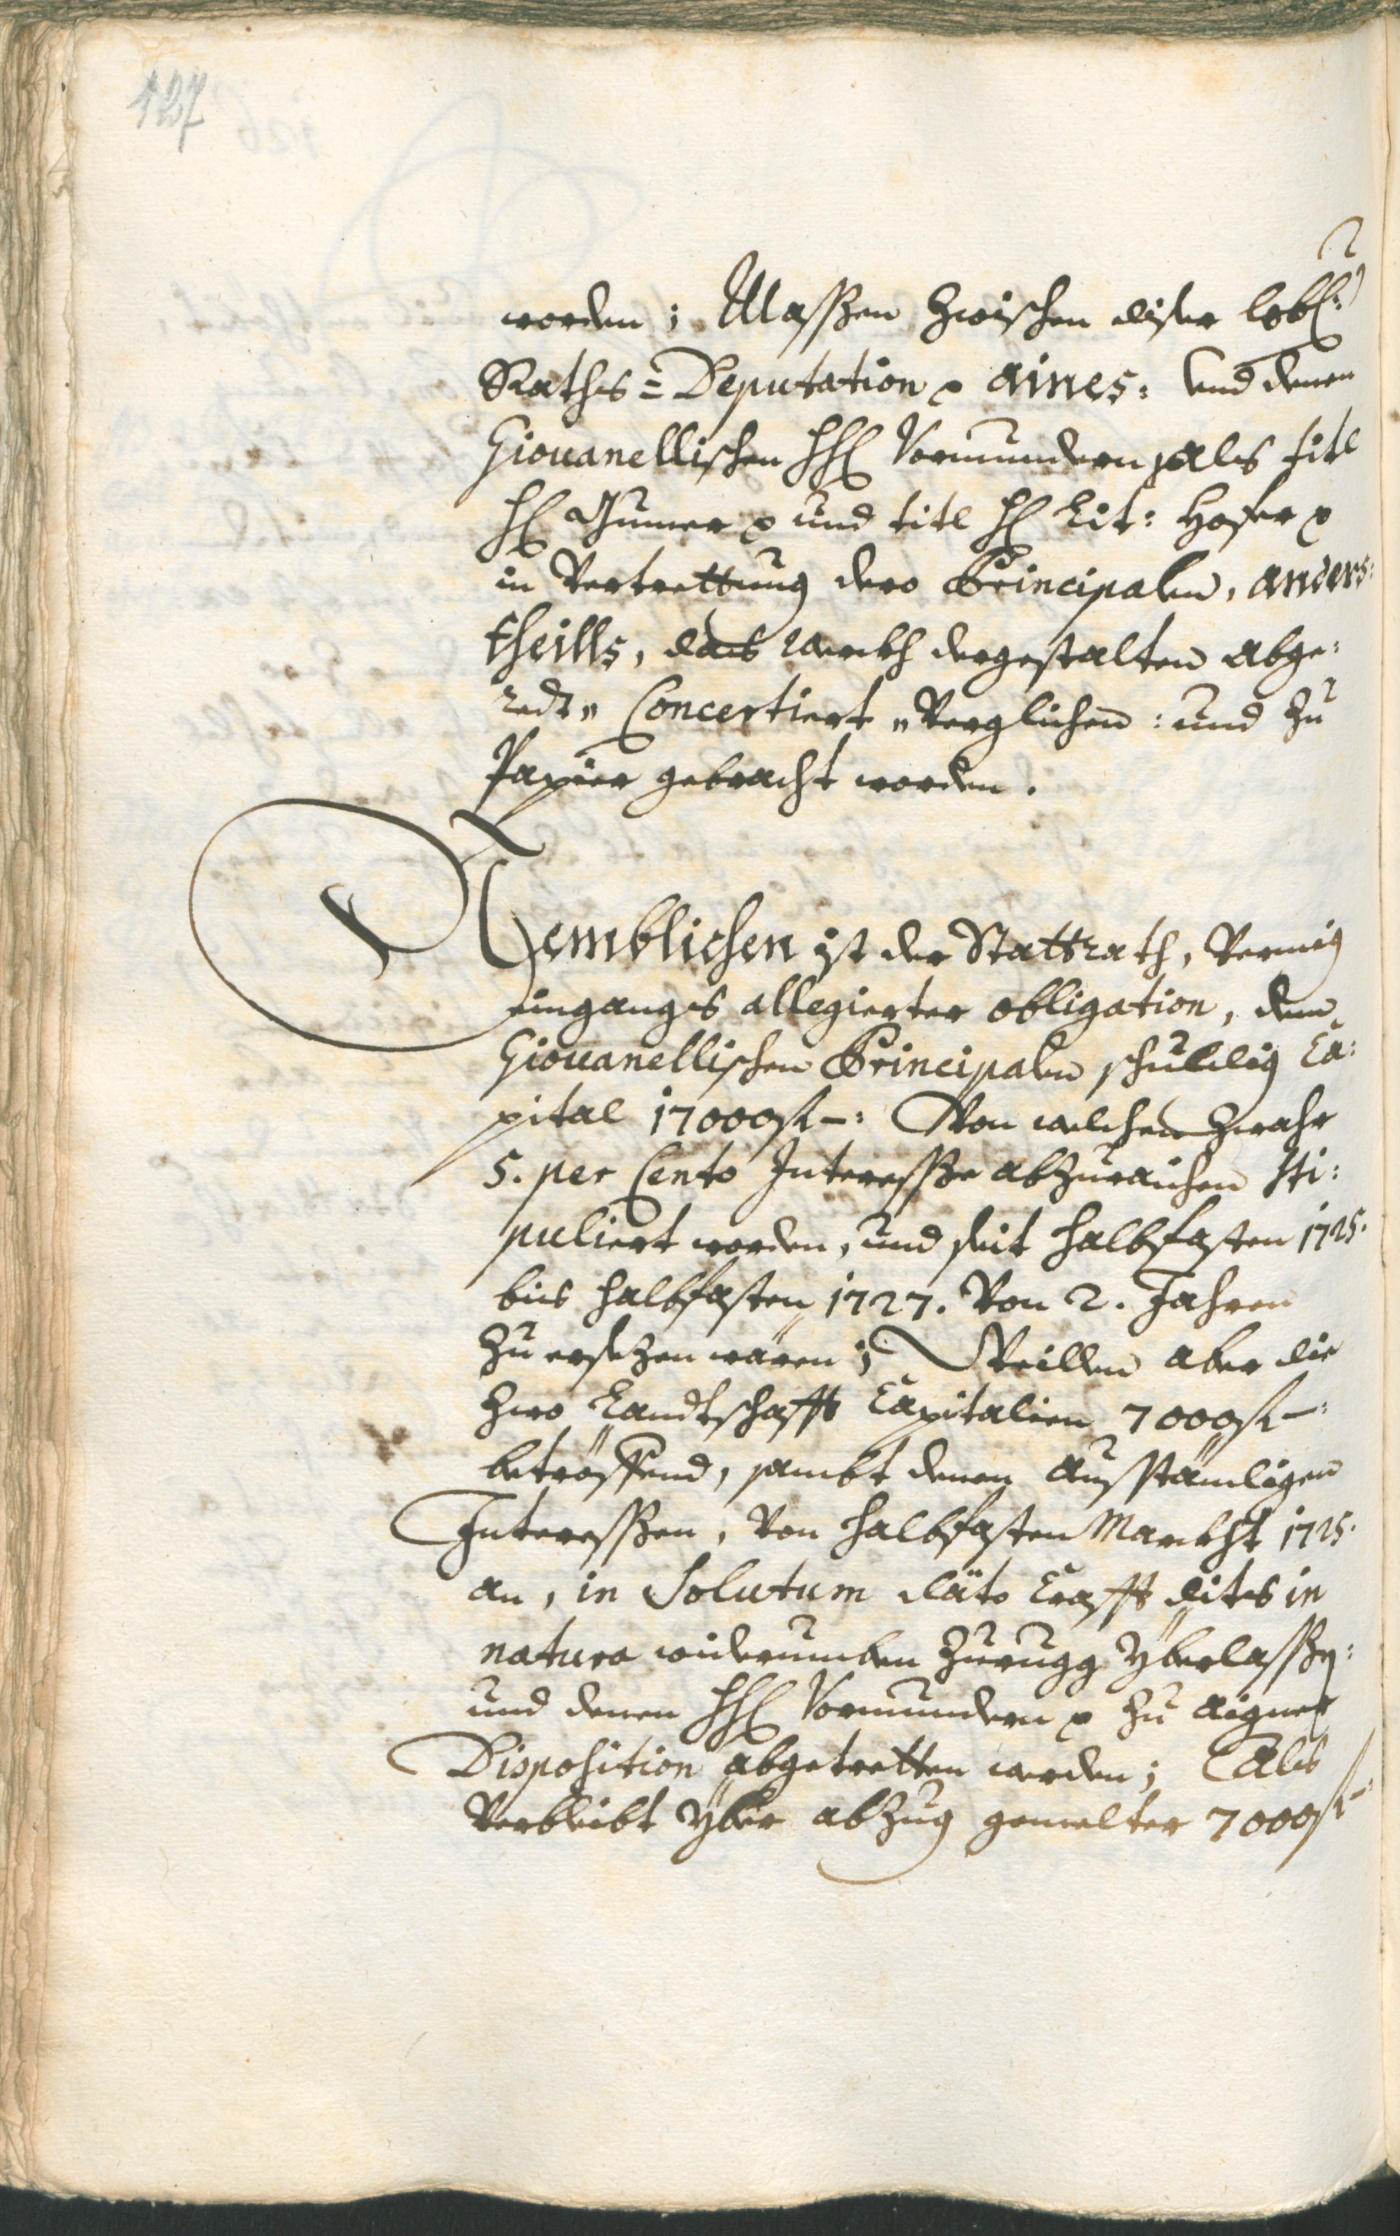 127
worden; Massen zwischen diser lobl:
Raths= Deputation p aines: und denen
Giouanellischen HH Vormundern, als titl
H Gumer p und titl H Lit: Hofer p
in Vertrettung dero Principalen, anders:
theills, das werkh dergestalten abge:
redt„ Concertiert„ Verglichen: und zu
Papier gebracht worden.
Nemblichen ist der Stattrath, Vermig
eingangs allegierter obligation, denen
Giouanellischen Principalen schuldig Ca:
pital 17000 fl –: Von welchen zwahr
5. per Cento Interesse abzuraichen sti:
puliert worden, und seit halbfasten 1725.
bis halbfasten 1727. Von 2. Jahren
zu ersezen wären; Weillen aber die
zwo Landtschafft Capitalien 7000 fl –:
betröffend, sambt denen ausständigen
Interessen, Von halbfasten Markht 1725.
an, in Solutum däto Crafft dits in
natura widerumben zurugg yberlassen:
und denen HH Vormundern p zu aigner
Disposition abgetretten werden; Als
Verbleibt yber abzug gemelter 7000 fl –: